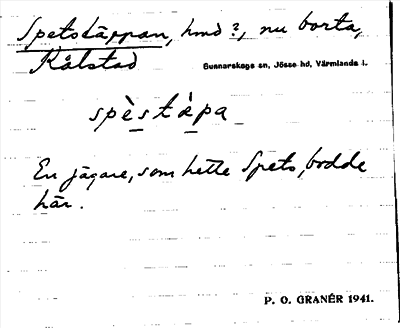 Spetstäppan, hmd?, nu borta,
Kålstad
Gunnarskogs sn, Jösse hd, Värmlands l.
spès tàpa
En jägare, som hette Spets, bodde
här.
P. O. GRANÉR 1941.